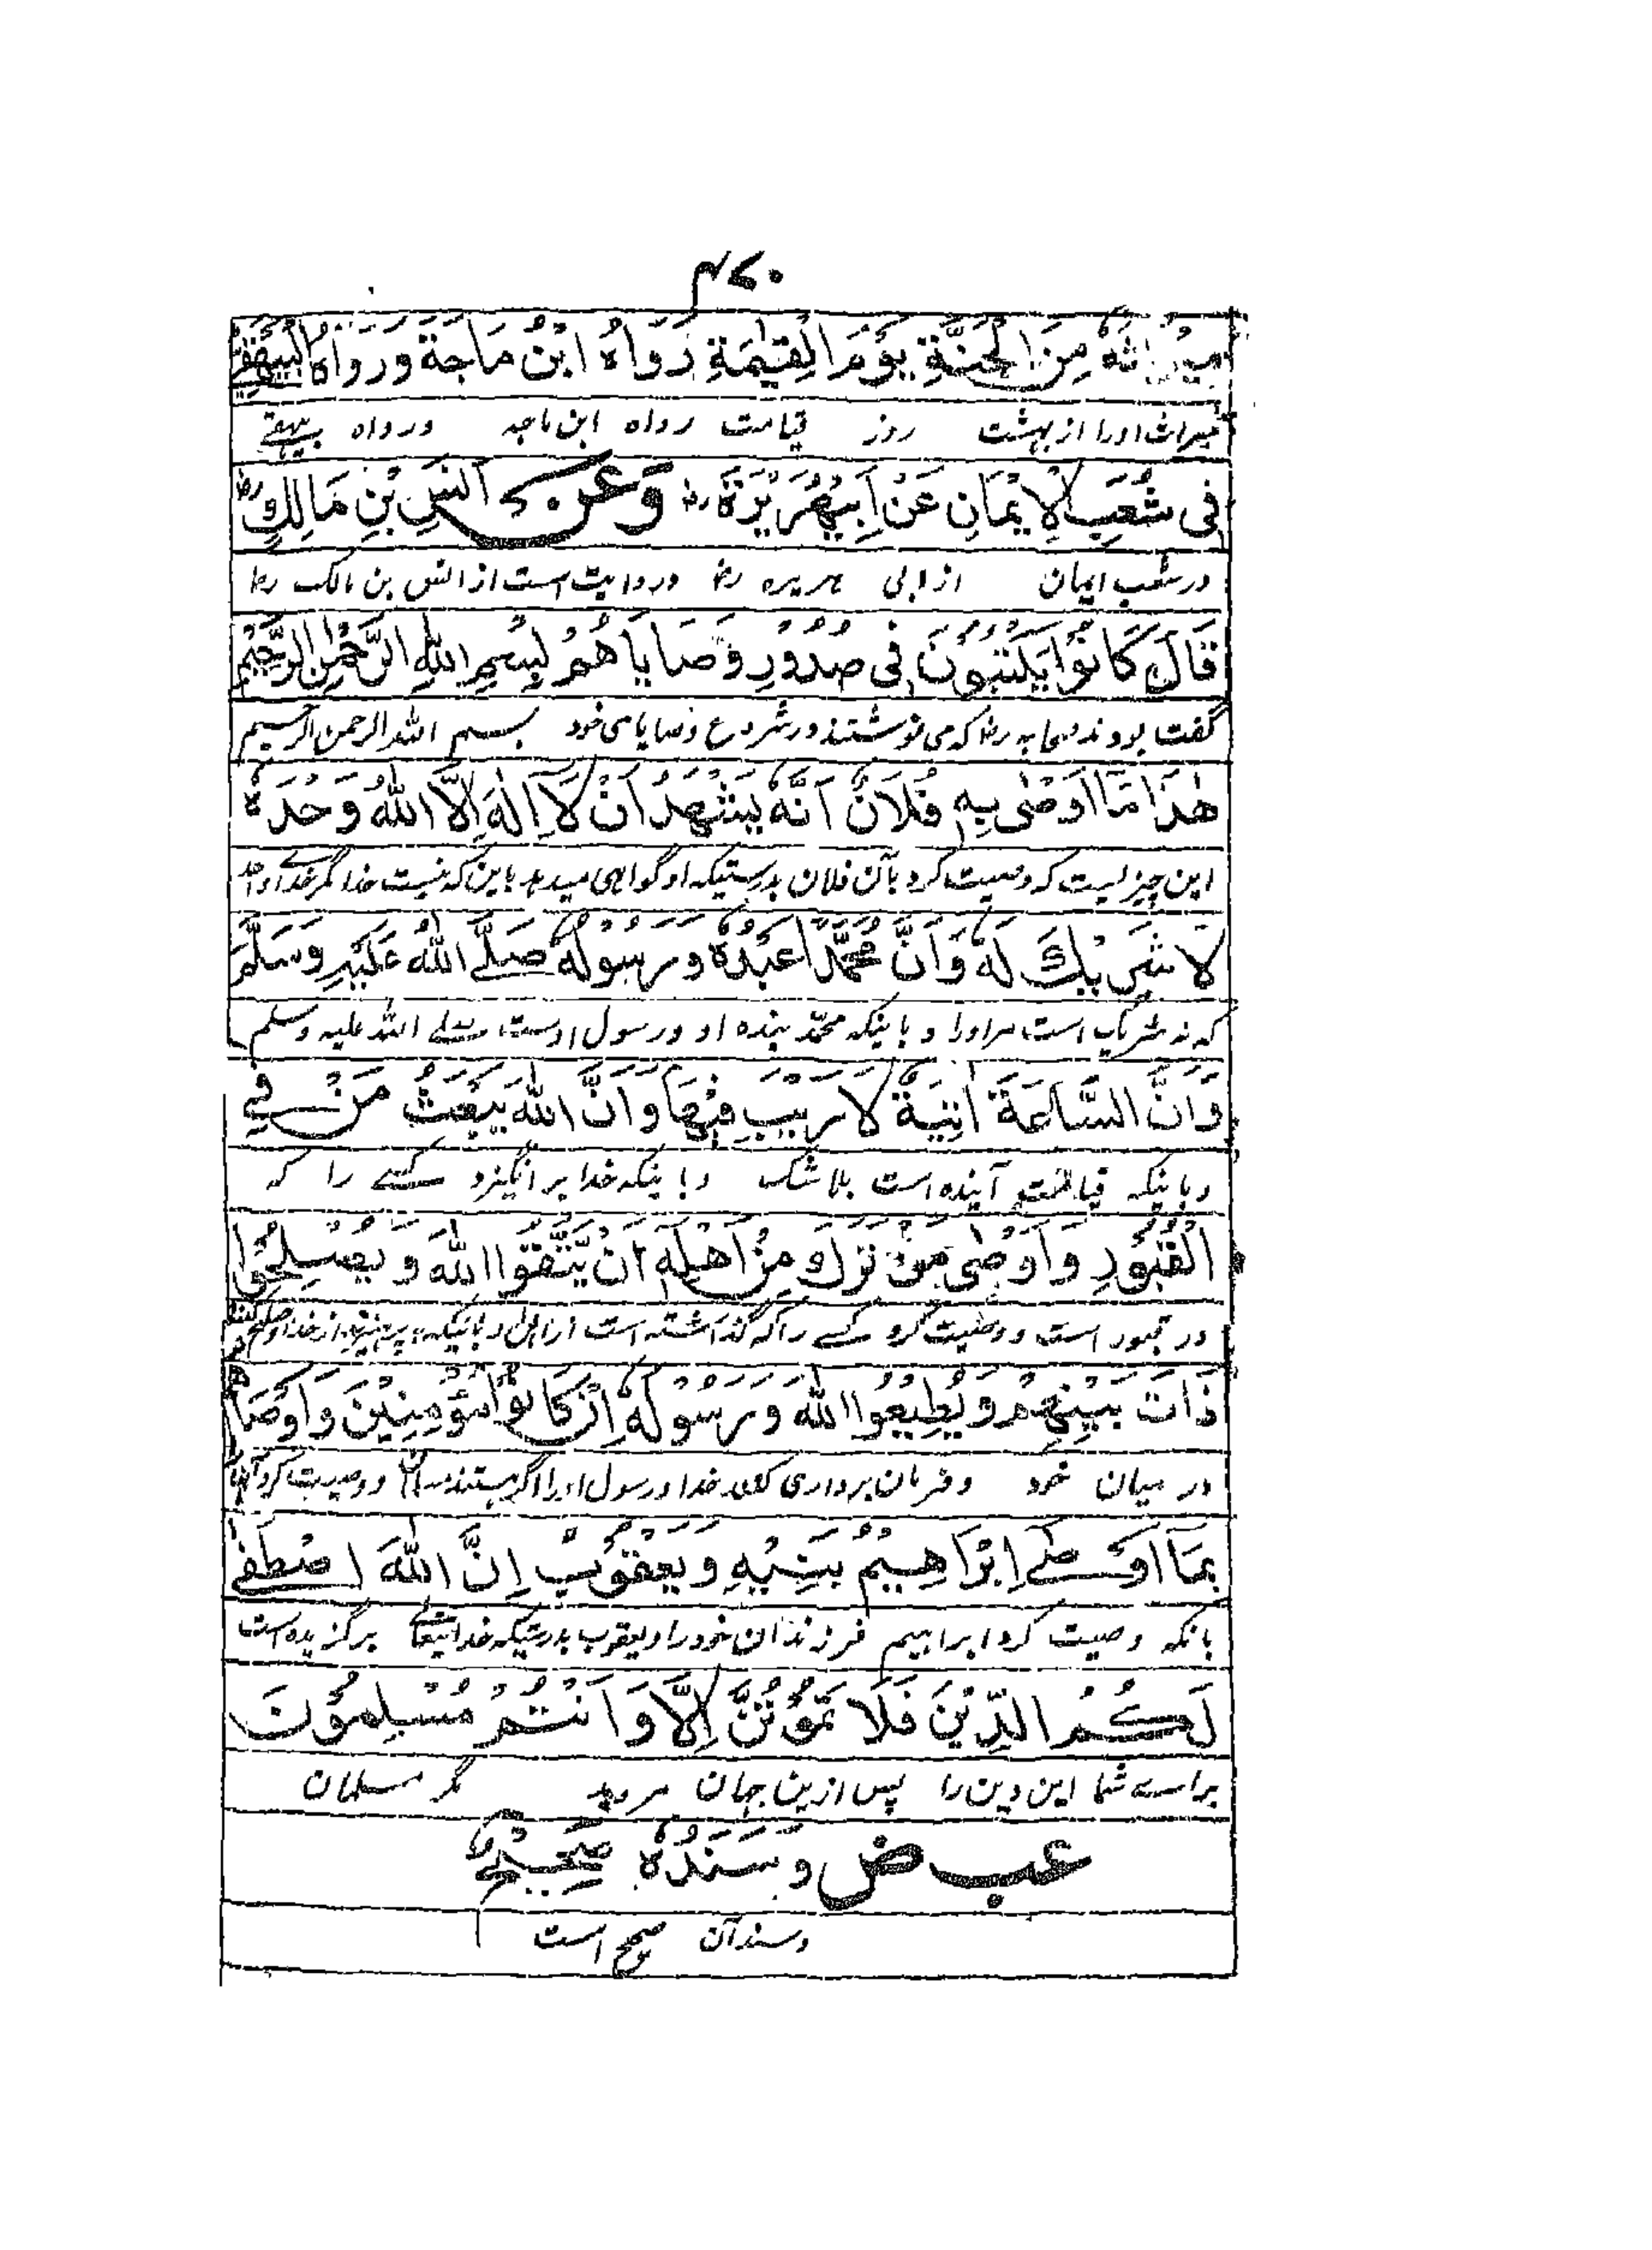 ۴۷۰
مِيْرَاثَهٗ مِنَ الْجَنَّةِ يَوْمَ الْقِيٰمَةِ رَوَاهُ ابْنُ مَاجَةَ وَرَوَاهُ الْبَيْهَقِيُّ
میراث اورا از بهشت روز قیامت رواه ابن ماجه ورواه بیهقے
فِى شُعَبِ الْاِيْمَانِ عَنْ اَبِيْ هُرَيْرَةَ رض وَعَنْ اَنَسِ بْنِ مَالِكٍ رض
در شعب ایمان از ابی هریره رض وروایت است از انس بن مالک رض
قَالَ كَانُوْا يَكْتُبُوْنَ فِى صُدُوْرِ وَصَايَاهُمْ بِسْمِ اللهِ الرَّحْمٰنِ الرَّحِيْمِ
گفت بودند صحابه رض که می نوشتند در شروع وصایای خود بسم الله الرحمن الرحیم
هٰذَا مَا اَوْصٰى بِهٖ فُلَانٌ اَنَّهٗ يَشْهَدُ اَنْ لَّا اِلٰهَ اِلَّا اللهُ وَحْدَهٗ
این چیز است که وصیت کرد بآن فلان بدرستیکه او گواهی میدهد باین که نیست خدا مگر خدائے واحد
لَا شَرِيْكَ لَهٗ وَاَنَّ مُحَمَّدًا عَبْدُهٗ وَرَسُوْلُهٗ صَلَّے اللهُ عَلَيْهِ وَسَلَّمَ
که نه شریک است مر اورا و باینکه محمّد بنده او ورسول اوست صلے الله علیه وسلم
وَاَنَّ السَّاعَةَ اٰتِيَةٌ لَا رَيْبَ فِيْهَا وَاَنَّ اللهَ يَبْعَثُ مَنْ فِي
وباینکه قیامت آینده است بلا شک وباینکه خدا بر انگیزد کسے را که
الْقُبُوْرِ وَاَوْصٰى مَنْ تَرَكَ مِنْ اَهْلِهٖ اَنْ يَّتَّقُوا اللهَ وَيُصْلِحُوْا
در قبور است ووصیت کرد کسے را که گذاشته است از اهل وباینکه بپرهیزند از خدا وصلح کنند
ذَاتَ بَيْنِهِمْ وَيُطِيْعُوا اللهَ وَرَسُوْلَهٗ اِنْ كَانُوْا مُؤْمِنِيْنَ وَاَوْصَاهُمْ
در میان خود وفرمان برداری کنند خدا ورسول اورا اگر هستند ووصیت کرد آنها
بِمَا اَوْصٰے اِبْرَاهِيْمُ بَنِيْهِ وَيَعْقُوْبُ اِنَّ اللهَ اصْطَفٰے
بانکه وصیت کرد ابراهیم فرزندان خود را ویعقوب بدرستیکه خدایتعالے برگزیده است
لَكُمُ الدِّيْنَ فَلَا تَمُوْتُنَّ اِلَّا وَاَنْتُمْ مُسْلِمُوْنَ
برائے شما این دین را پس ازین جهان مروید مگر مسلمان
عب ض وَسَنَدُهٗ صَحِيْحٌ
وسند آن صحیح است